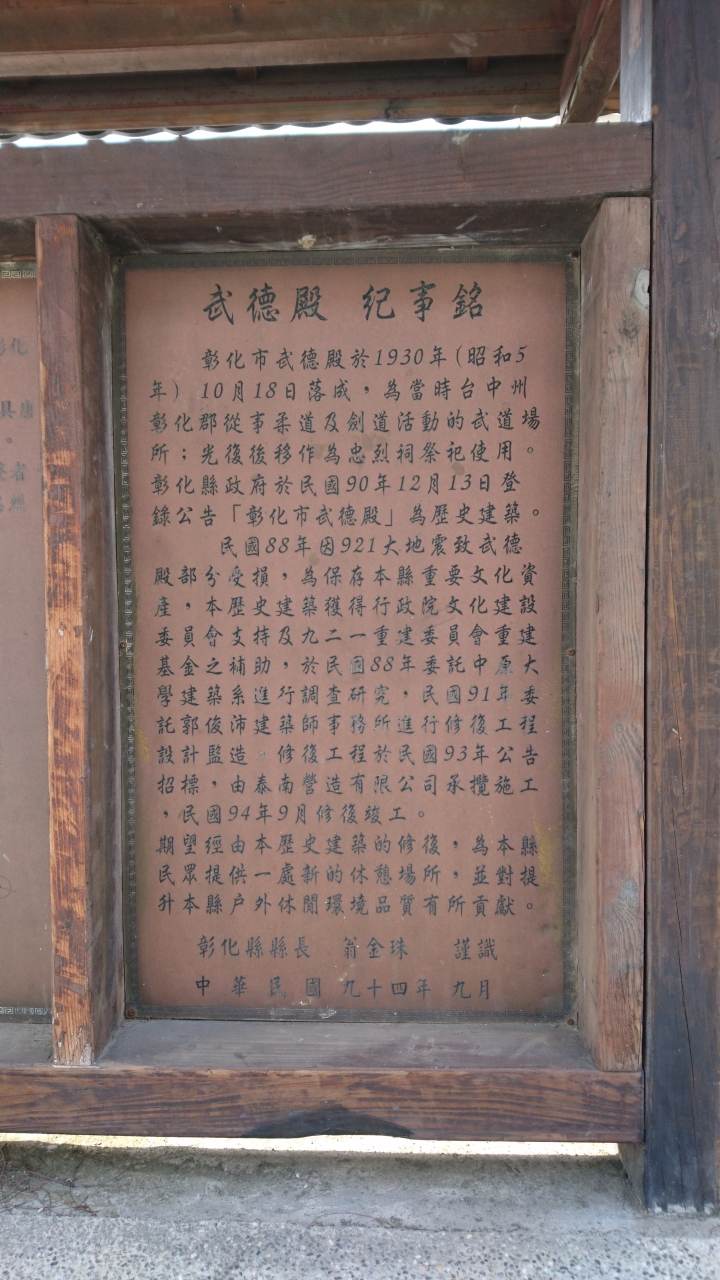 武德殿 紀事銘
彰化市武德殿於1930年(昭和5
年) 10月18日落成,為當時台中州
彰化郡從事柔道及劍道活動的武道場
所;光復後移作為忠烈祠祭祀使用。
彰化縣政府於民國90年12月13日登
錄公告「彰化市武德殿」為歷史建築。
民國88年因921大地震致武德
殿部分受損,為保存本縣重要文化資
產,本歷史建築獲得行政院文化建設
委員會支持及九二一重建委員會重建
基金之補助,於民國88年委託中原大
學建築系進行調查研究,民國91年委
託郭俊沛建築師事務所進行修復工程
設計監造。修復工程於民國93年公告
招標,由泰南營造有限公司承攬施工
,民國94年9月修復竣工。
期望經由本歷史建築的修復,為本縣
民眾提供一處新的休憩場所,並對提
升本縣戶外休閒環境品質有所貢獻。
彰化縣縣長 翁金珠 謹識
中華民國九十四年九月
彰化
具康
。
者
烈